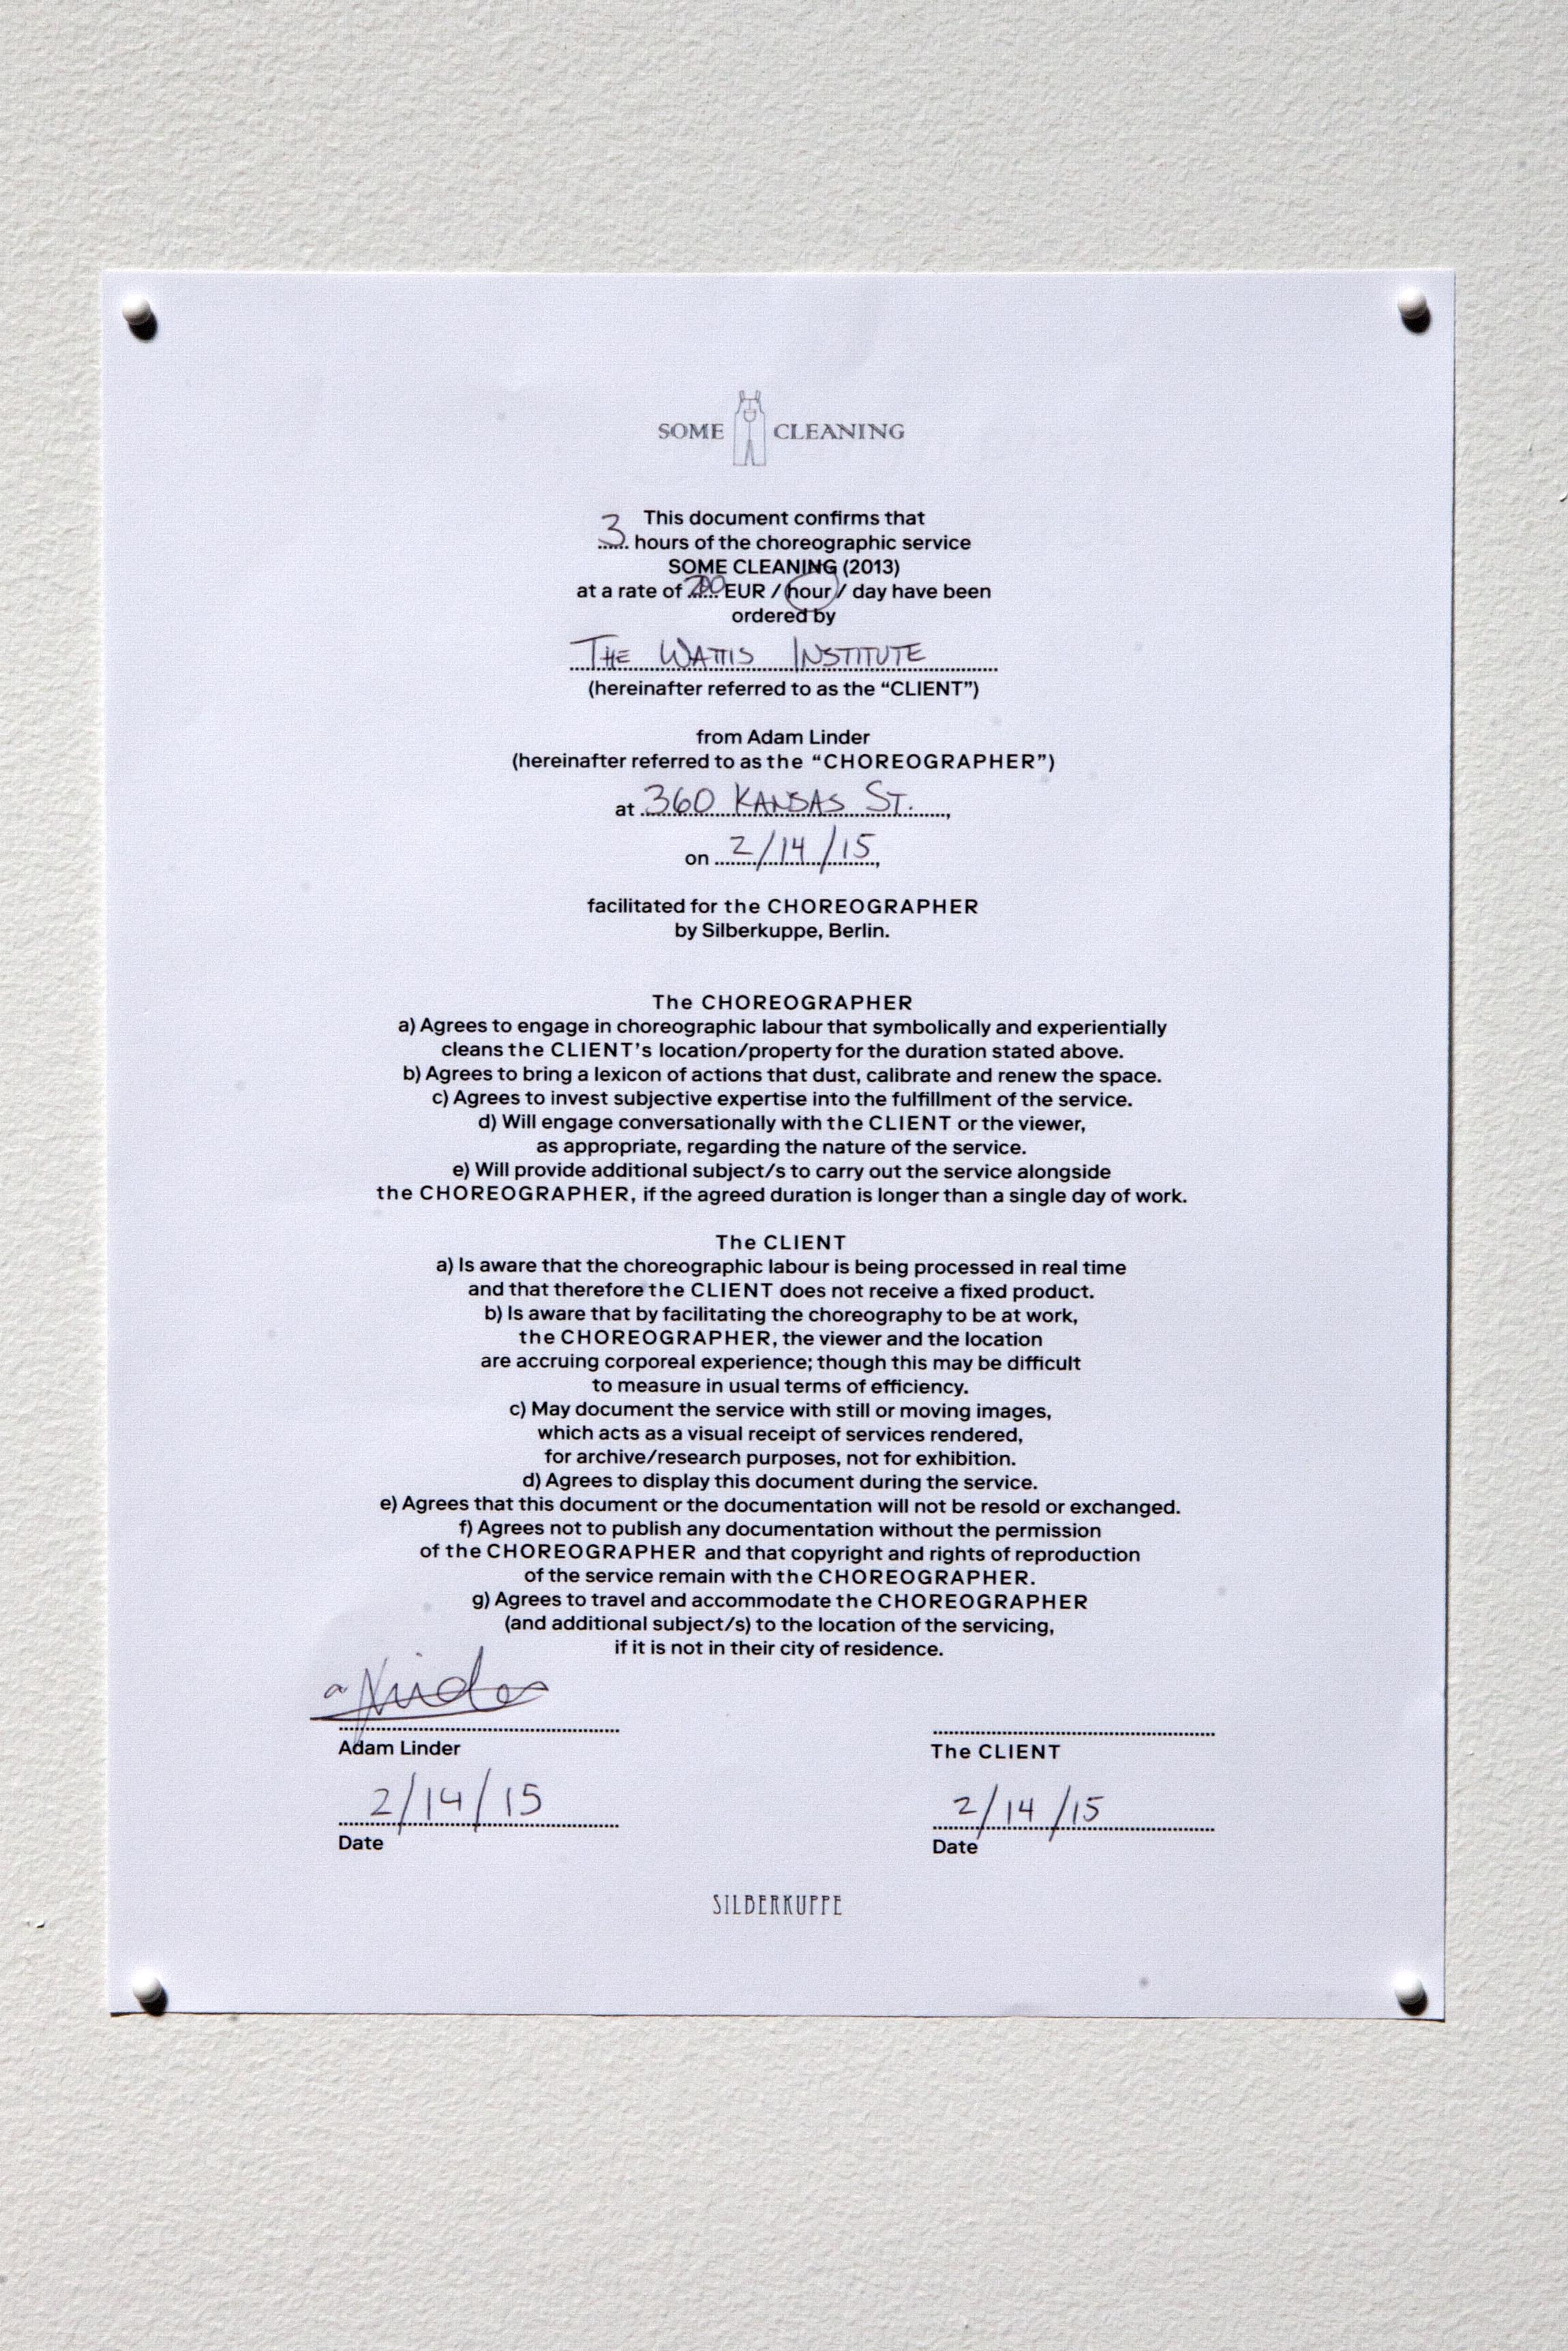 SOME CLEANING
This document confirms that
3 hours of the choreographic service
SOME CLEANING (2013)
at a rate of 200 EUR / hour / day have been
ordered by
THE WATTIS INSTITUTE
(hereinafter referred to as the “CLIENT”)
from Adam Linder
(hereinafter referred to as the “CHOREOGRAPHER”)
at 360 KANSAS ST.,
on 2/14/15,
facilitated for the CHOREOGRAPHER
by Silberkuppe, Berlin.
The CHOREOGRAPHER
a) Agrees to engage in choreographic labour that symbolically and experientially
cleans the CLIENT’s location/property for the duration stated above.
b) Agrees to bring a lexicon of actions that dust, calibrate and renew the space.
c) Agrees to invest subjective expertise into the fulfillment of the service.
d) Will engage conversationally with the CLIENT or the viewer,
as appropriate, regarding the nature of the service.
e) Will provide additional subject/s to carry out the service alongside
the CHOREOGRAPHER, if the agreed duration is longer than a single day of work.
The CLIENT
a) Is aware that the choreographic labour is being processed in real time
and that therefore the CLIENT does not receive a fixed product.
b) Is aware that by facilitating the choreography to be at work,
the CHOREOGRAPHER, the viewer and the location
are accruing corporeal experience; though this may be difficult
to measure in usual terms of efficiency.
c) May document the service with still or moving images,
which acts as a visual receipt of services rendered,
for archive/research purposes, not for exhibition.
d) Agrees to display this document during the service.
e) Agrees that this document or the documentation will not be resold or exchanged.
f) Agrees not to publish any documentation without the permission
of the CHOREOGRAPHER and that copyright and rights of reproduction
of the service remain with the CHOREOGRAPHER.
g) Agrees to travel and accommodate the CHOREOGRAPHER
(and additional subject/s) to the location of the servicing,
if it is not in their city of residence.
Adam Linder
The CLIENT
2/14/15
2/14/15
Date
Date
SILBERKUPPE